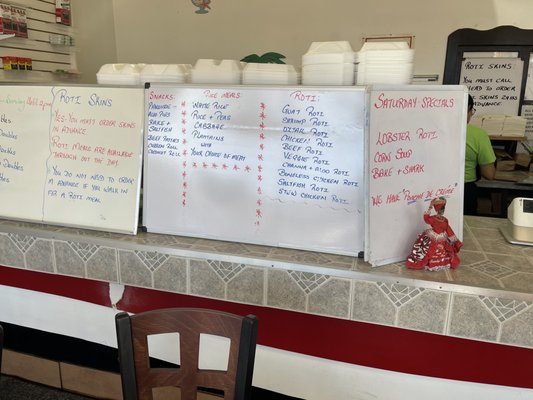 Doubles
Doubles
ROTI SKINS
YES- YOU MUST ORDER SKINS
IN ADVANCE
ROTI MEALS ARE AVAILABLE
THROUGH OUT THE DAY
YOU DO NOT NEED TO ORDER
IN ADVANCE IF YOU WALK IN
FOR A ROTI MEAL
SNACKS
PHOLOURIE
ALOO PIES
BAKE &
SALTFISH
SHRIMP
RICE MEALS
WHITE RICE
RICE & PEAS
CABBAGE
PLANTAINS
WITH
YOUR CHOICE OF MEAT
ROTI:
GOAT ROTI
SHRIMP ROTI
OXTAIL ROTI
CHICKEN ROTI
BEEF ROTI
VEGGIE ROTI
CHANNA & ALOO ROTI
BONELESS CHICKEN ROTI
SALTFISH ROTI
STEW CHICKEN ROTI
SATURDAY SPECIALS
LOBSTER ROTI
CORN SOUP
BAKE & SHARK
WE HAVE "PONCHE DE CREME"
ROTI SKINS
YOU MUST CALL
ORDER SKINS IN
ADVANCE